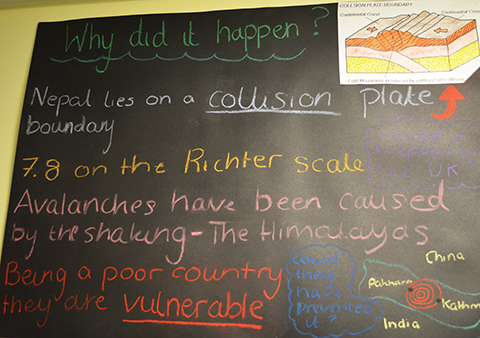 Why did it happen?
COLLISION PLATE BOUNDARY
Continental Crust
Continental Crust
Nepal lies on a collision plate
boundary
7.8 on the Richter scale
UK
Avalanches have been caused
by the shaking - The Himalayas
Being a poor country
they are vulnerable
could
they
have
prevented
it?
China
Pokhara
Kathm
India